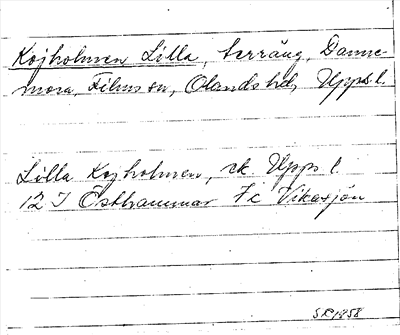 Kojholmen Lilla, terräng, Danne-
mora, Films sn, Olands hd, Upps. l.
Lilla Kojholmen, ek. Upps l.
12 I Östhammar Fc Vikasjön
SR 1958